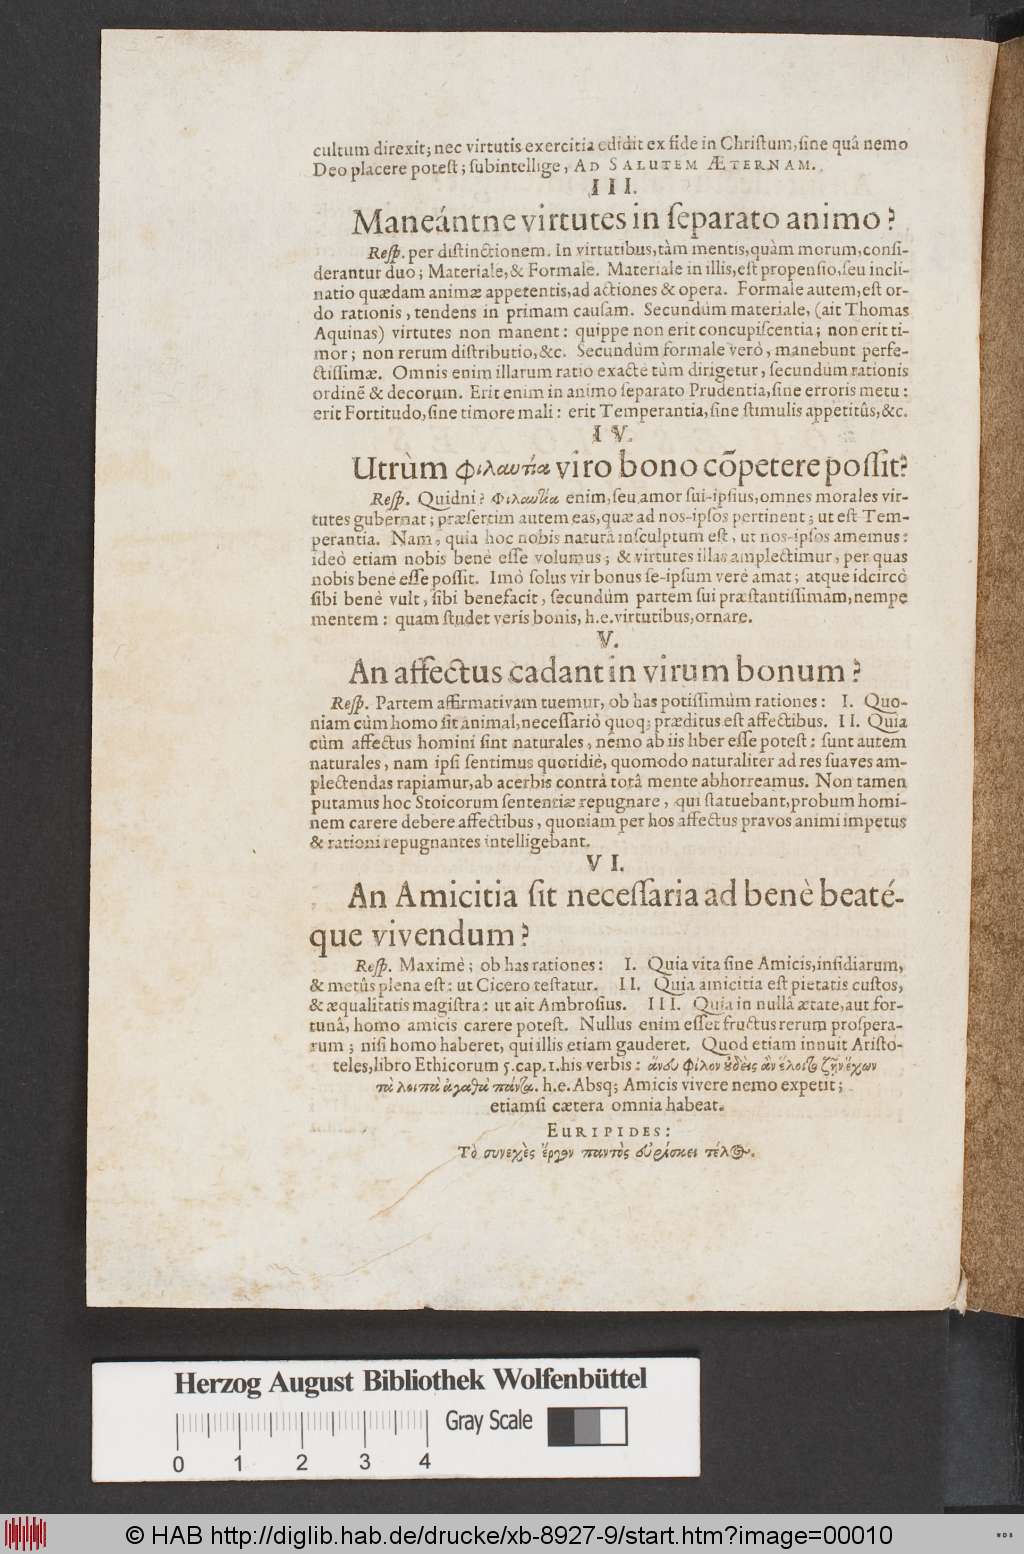 cultum direxit; nec virtutis exercitia edidit ex fide in Chriſtum, ſine quâ nemo
Deo placere poteſt; ſubintellige, AD SALUTEM ÆTERNAM.
III.
Maneántne virtutes in ſeparato animo?
Reſp. per diſtinctionem. In virtutibus, tàm mentis, quàm morum, conſi-
derantur duo; Materiale, & Formale. Materiale in illis, eſt propenſio, ſeu incli-
natio quædam animæ appetentis, ad actiones & opera. Formale autem, eſt or-
do rationis, tendens in primam cauſam. Secundùm materiale, (ait Thomas
Aquinas) virtutes non manent: quippe non erit concupiſcentia; non erit ti-
mor; non rerum diſtributio, &c. Secundùm formale verò, manebunt perfe-
ctiſſimæ. Omnis enim illarum ratio exactè tùm dirigetur, ſecundùm rationis
ordinẽ & decorum. Erit enim in animo ſeparato Prudentia, ſine erroris metu:
erit Fortitudo, ſine timore mali: erit Temperantia, ſine ſtimulis appetitûs, &c.
IV.
Utrùm φιλαυτία viro bono cõpetere poſſit?
Reſp. Quidni? Φιλαυτία enim, ſeu amor ſui-ipſius, omnes morales vir-
tutes gubernat; præſertim autem eas, quæ ad nos-ipſos pertinent; ut eſt Tem-
perantia. Nam, quia hoc nobis naturâ inſculptum eſt, ut nos-ipſos amemus:
ideò etiam nobis benè eſſe volumus; & virtutes illas amplectimur, per quas
nobis benè eſſe poſſit. Imò ſolus vir bonus ſe-ipſum verè amat; atque idcircò
ſibi benè vult, ſibi benefacit, ſecundùm partem ſui præſtantiſſimam, nempe
mentem: quam ſtudet veris bonis, h.e. virtutibus, ornare.
V.
An affectus cadant in virum bonum?
Reſp. Partem affirmativam tuemur, ob has potiſſimùm rationes: I. Quo-
niam cùm homo ſit animal, neceſſariò quoq; præditus eſt affectibus. II. Quia
cùm affectus homini ſint naturales, nemo ab iis liber eſſe poteſt: ſunt autem
naturales, nam ipſi ſentimus quotidiè, quomodo naturaliter ad res ſuaves am-
plectendas rapiamur, ab acerbis contrà totâ mente abhorreamus. Non tamen
putamus hoc Stoicorum ſententiæ repugnare, qui ſtatuebant, probum homi-
nem carere debere affectibus, quoniam per hos affectus pravos animi impetus
& rationi repugnantes intelligebant.
VI.
An Amicitia ſit neceſſaria ad benè beaté-
que vivendum?
Reſp. Maximè; ob has rationes: I. Quia vita ſine Amicis, inſidiarum,
& metûs plena eſt: ut Cicero teſtatur. II. Quia amicitia eſt pietatis cuſtos,
& æqualitatis magiſtra: ut ait Ambroſius. III. Quia in nullâ ætate, aut for-
tunâ, homo amicis carere poteſt. Nullus enim eſſet fructus rerum proſpera-
rum; niſi homo haberet, qui illis etiam gauderet. Quod etiam innuit Ariſto-
teles, libro Ethicorum 5. cap. 1. his verbis: ἄνευ φίλον ὀδεὶς ἂν ἕλοιτο ζῆν ἔχων
τὰ λοιπὰ ἀγαθὰ πάντα. h.e. Absq; Amicis vivere nemo expetit;
etiamſi cætera omnia habeat.
EURIPIDES:
Τὸ συνεχὲς ἔργον παντὸς εὑρίσκει τέλος.
Herzog August Bibliothek Wolfenbüttel
Gray Scale
0 1 2 3 4
© HAB http://diglib.hab.de/drucke/xb-8927-9/start.htm?image=00010